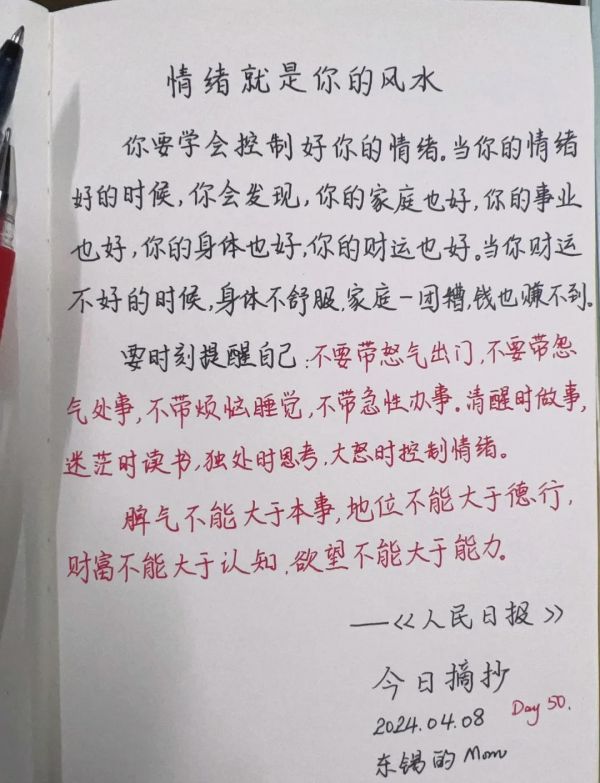 情绪就是你的风水
你要学会控制好你的情绪。当你的情绪
好的时候，你会发现，你的家庭也好，你的事业
也好，你的身体也好，你的财运也好。当你财运
不好的时候，身体不舒服，家庭一团糟，钱也赚不到。
要时刻提醒自己：不要带怒气出门，不要带怨
气处事，不带烦恼睡觉，不带急性办事。清醒时做事，
迷茫时读书，独处时思考，大怒时控制情绪。
脾气不能大于本事，地位不能大于德行，
财富不能大于认知，欲望不能大于能力。
——《人民日报》
今日摘抄
2024.04.08 Day 50.
东锡的Mom